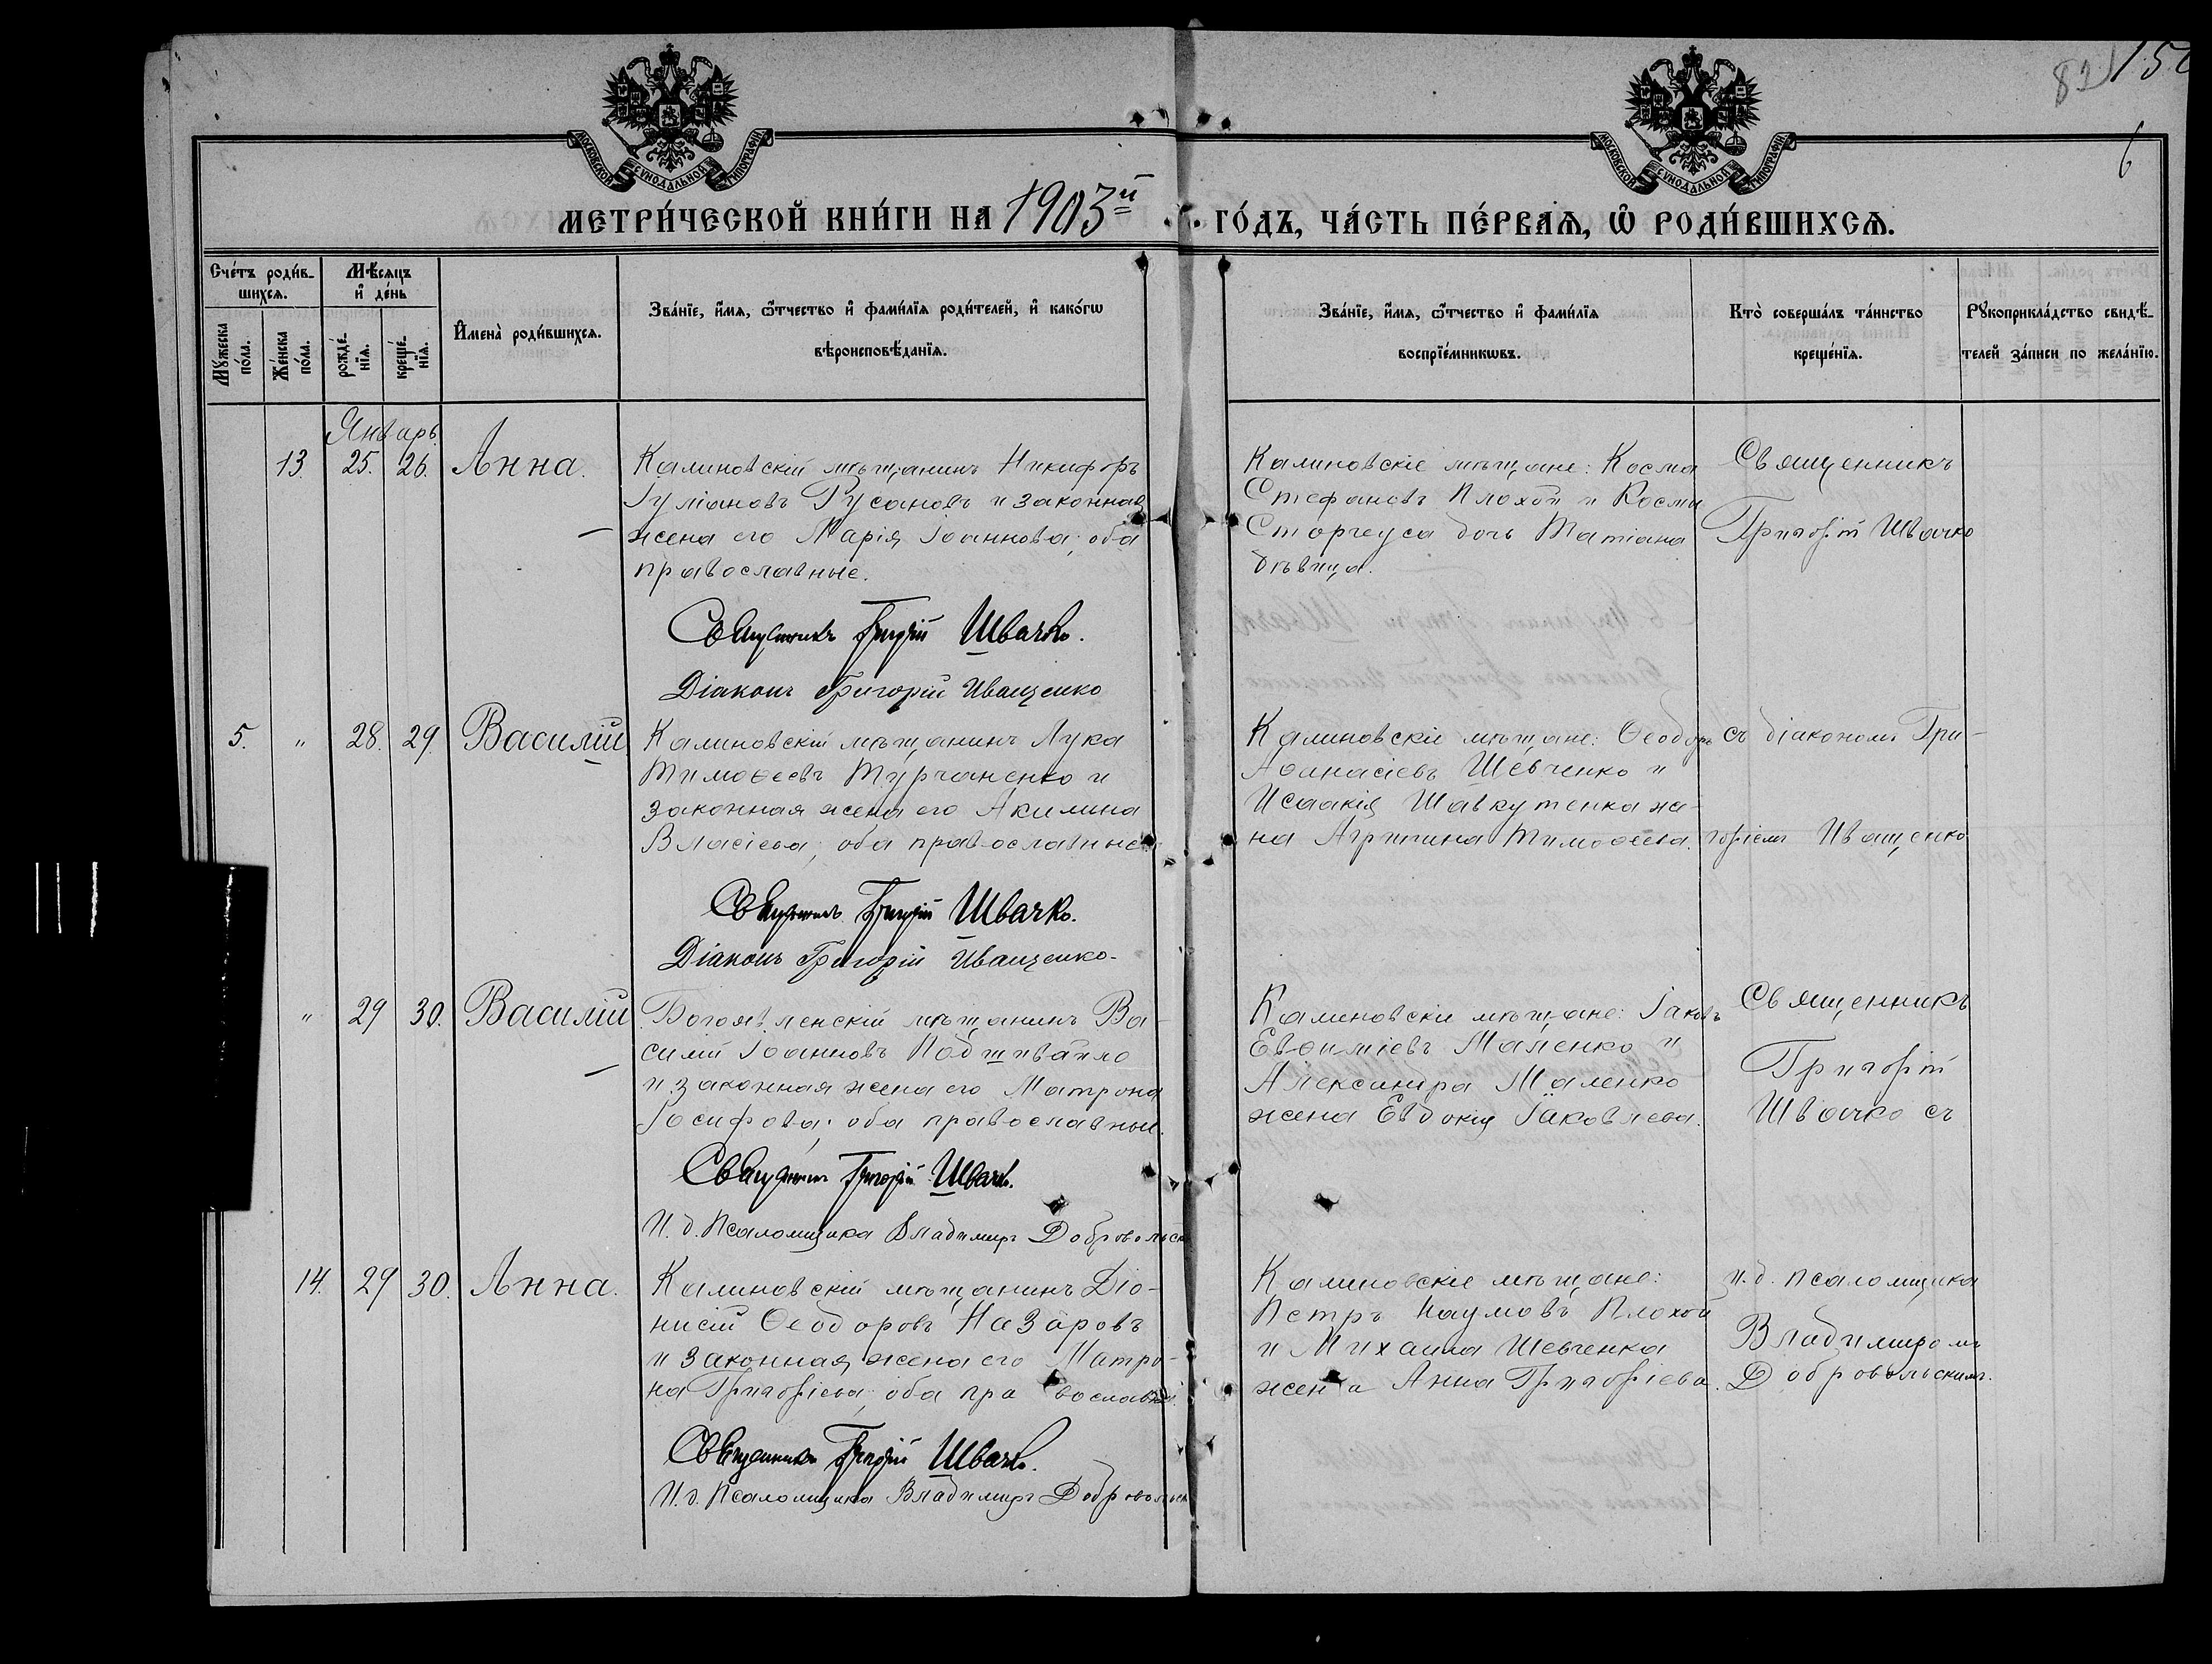 МОСКОВСКОЙ СѴНОДАЛЬНОЙ ТИПОГРАФІИ
МОСКОВСКОЙ СѴНОДАЛЬНОЙ ТИПОГРАФІИ
821
6
МЕТРИ́ЧЕСКОЙ КНИ́ГИ НА 1903й ГО́ДЪ, ЧА́СТЬ ПЕ́РВАѦ, Ѡ РОДИ́ВШИХСѦ.
Сче́тъ роди́вшихсѧ.
Мꙋжеска по́ла.
Же́нска по́ла.
Мѣ́сѧцъ и де́нь
рожде́нїѧ.
креще́нїѧ.
Имена̀ роди́вшихсѧ.
Зва́нїе, и҆́мѧ, ѻ҆́тчество и҆ фами́лїѧ роди́телей, и҆ како́гѡ
вѣроисповѣ́данїѧ.
Зва́нїе, и҆́мѧ, ѻ҆́тчество и҆ фами́лїѧ
воспрїе́мникѡвъ.
Кто̀ соверша́лъ та́инство
креще́нїѧ.
Рꙋкоприкла́дство свидѣ́-
телей за́писи по жела́нїю.
Январь.
13. 25. 26. Анна.
Калиновскій мѣщанинъ Никифоръ
Іуліановъ Русановъ и законная
жена его Марія Іоаннова; оба
православные.
Священникъ Григорій Швачко.
Діаконъ Григорій Иващенко
Калиновскіе мѣщане: Косма
Стефановъ Плохой и Космы
Сторчеуса дочь Татіана
дѣвица.
Священникъ
Григорій Швачко
5. " 28. 29. Василій
Калиновскій мѣщанинъ Лука
Тимоѳеевъ Турчаненко и
законная жена его Акилина
Власіева; оба православные.
Священникъ Григорій Швачко.
Діаконъ Григорій Иващенко.
Калиновскіе мѣщане: Ѳеодоръ
Аѳанасіевъ Шевченко и
Исаакія Шавкутенка же-
на Агрипина Тимоѳеева.
съ діакономъ Гри-
горіемъ Иващенко
" 29 30. Василій
Богоявленскій мѣщанинъ Ва-
силій Іоанновъ Подшивайло
и законная жена его Матрона
Іосифова; оба православные.
Священникъ Григорій Швачко.
И. д. Псаломщика Владимиръ Добровольск
Калиновскіе мѣщане: Іаковъ
Евѳиміевъ Маленко и
Александра Маленко
жена Евдокія Іаковлева.
Священникъ
Григорій
Швачко съ
14. 29 30. Анна.
Калиновскій мѣщанинъ Діо-
нисій Ѳеодоровъ Назаровъ
и законная жена его Матро-
на Григоріева; оба православн.
Священникъ Григорій Швачко.
И. д. Псаломщика Владимиръ Добровольск
Калиновскіе мѣщане:
Петръ Наумовъ Плохой
и Михаила Шевченка
жена Анна Григоріева.
и. д. псаломщика
Владимиромъ
Добровольскимъ.